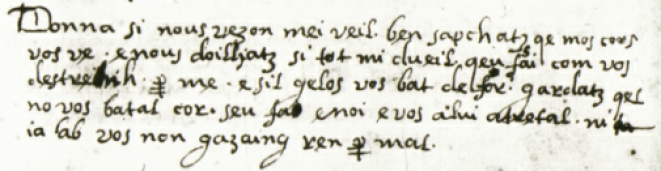 Donna si nous vezon mei veil. ben sapchatz qe mos cors
vos ve. e nous doilhatz si tot mi dueil. qeu sai com vos
destreinh. ꝑ me. e sil gelos vos bat defor. gardatz qel
no vos batal cor. seu fai enoi e vos a lui atretal. ni
ia ab vos non gazaing ren ꝑ mal.